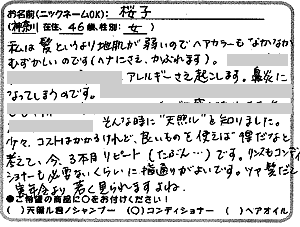 お名前(ニックネームOK): 桜子
(神奈川 在住、46歳、性別: 女)
私は髪というより地肌が弱いのでヘアカラーもなかなか
むずかしいのです(ハナにさえ、かぶれます)。
アレルギーさえ起こします。鼻炎に
なってしまうのです。
そんな時に"天然ル"と知りました。
少々、コストはかかるけれど、良いものを使えば得だなと
考えて、今、3本目リピート(たぶん…)です。リンスもコンディ
ショナーも必要ないくらいに指通りがよいです。ツヤ髪だと
実年齢より若く見られますよね。
●ご希望の商品に○をお付けください!
( )天然ル百ノシャンプー (○)コンディショナー ( )ヘアオイル